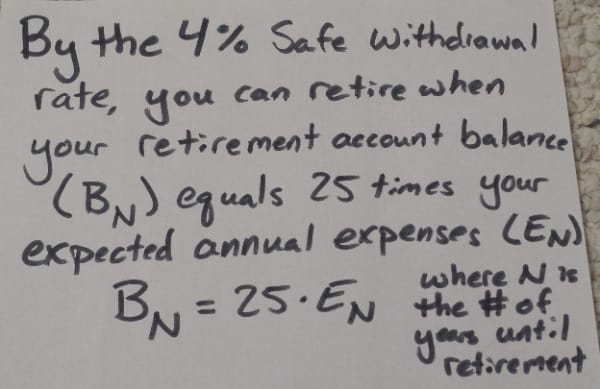 By the 4% Safe withdrawal
rate, you can retire when
your retirement account balance
(B_N) equals 25 times your
expected annual expenses (E_N)
B_N = 25 · E_N
where N is
the # of
years until
retirement